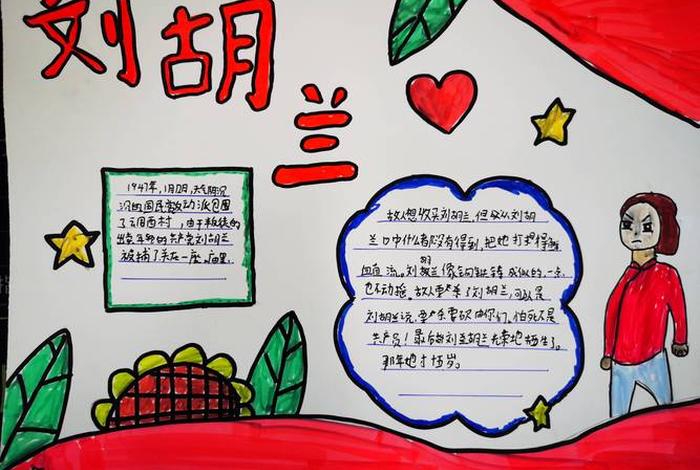 刘胡兰
1947年,1月12日,天气阴沉
沉的国民党反动派包围
了云周西村,由于叛徒的
出卖,年轻的共产党刘胡兰
被捕了关在一座庙里。
敌人想收买刘胡兰,但是从刘胡
兰口中什么都没有得到,把她打得鲜
血直流。刘胡兰像钢铁铸成似的,一点
也不动摇。敌人要杀了刘胡兰,可以是
刘胡兰说:要杀要砍由你们,怕死不是
共产员!最后刘胡兰光荣地牺牲了。
那年她才15岁。